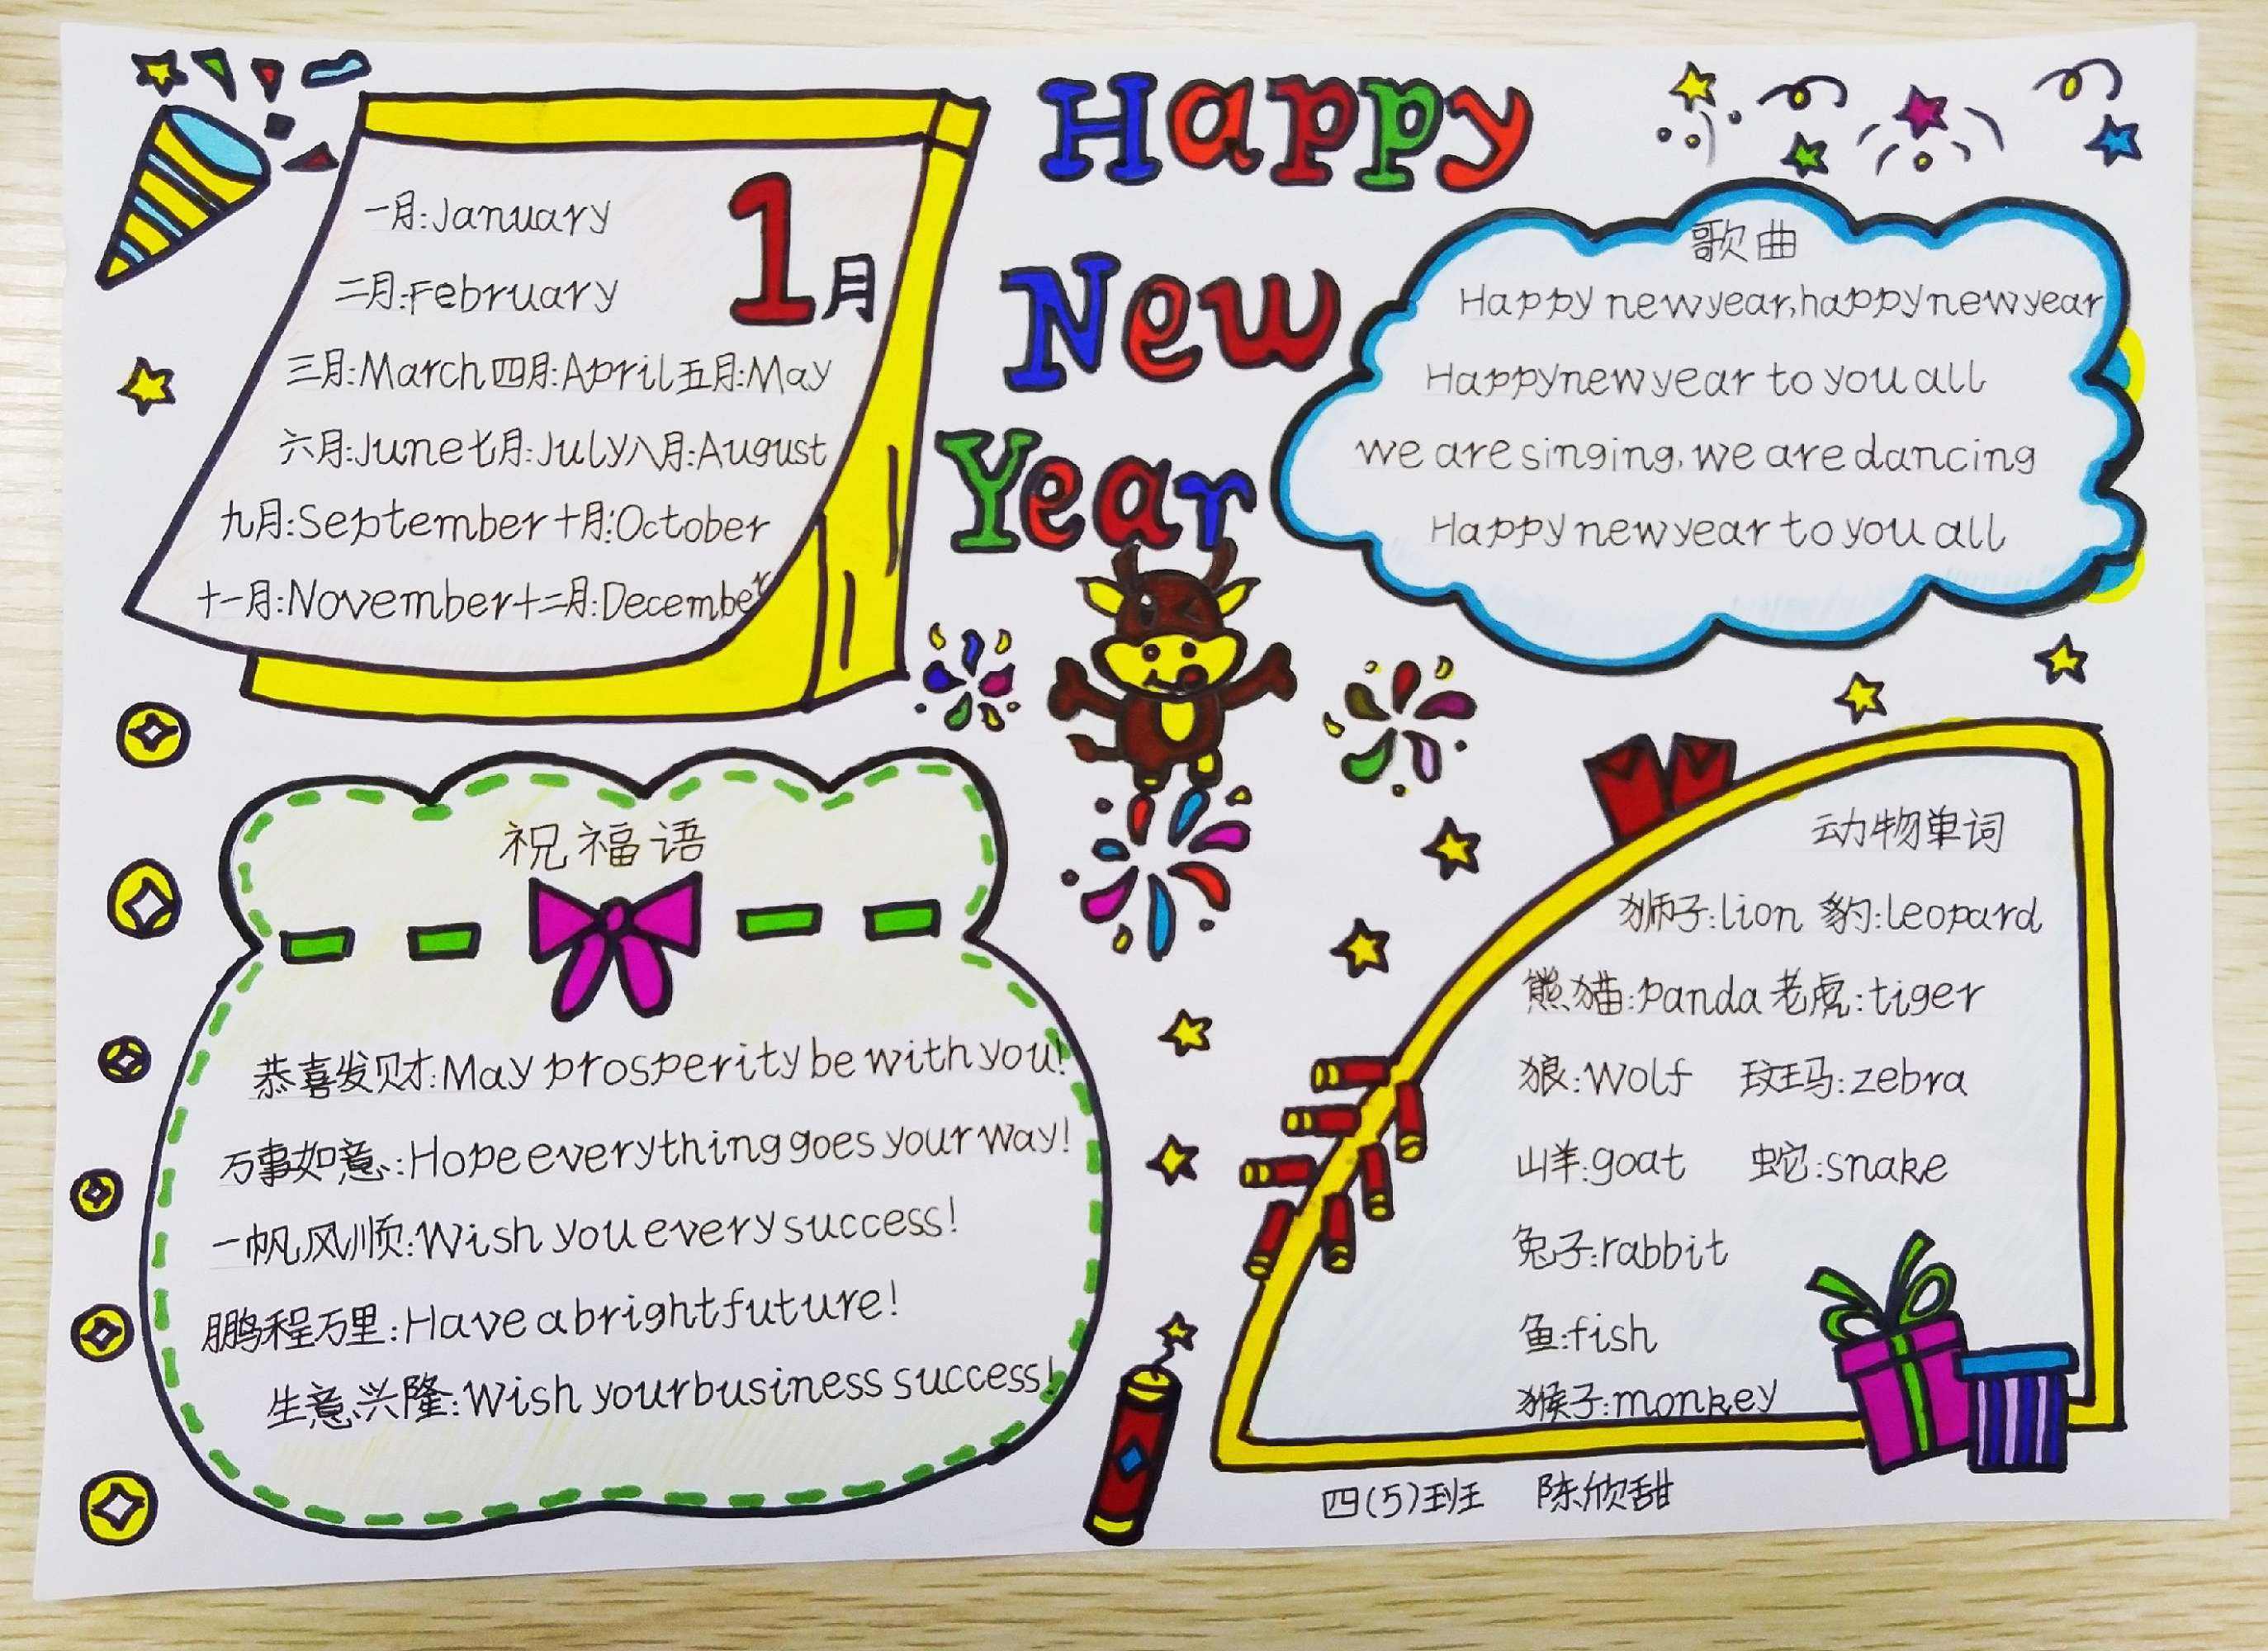 Happy
New
Year
1月
一月:January
二月:February
三月:March 四月:April 五月:May
六月:June 七月:July 八月:August
九月:September 十月:October
十一月:November 十二月:December
歌曲
Happy new year, happy new year
Happy new year to you all
we are singing, we are dancing
Happy new year to you all
祝福语
恭喜发财:May prosperity be with you!
万事如意:Hope everything goes your way!
一帆风顺:Wish you every success!
鹏程万里:Have a bright future!
生意兴隆:Wish your business success!
动物单词
狮子:lion 豹:leopard
熊猫:panda 老虎:tiger
狼:Wolf 斑马:zebra
山羊:goat 蛇:snake
兔子:rabbit
鱼:fish
猴子:monkey
四(5)班 陈欣甜